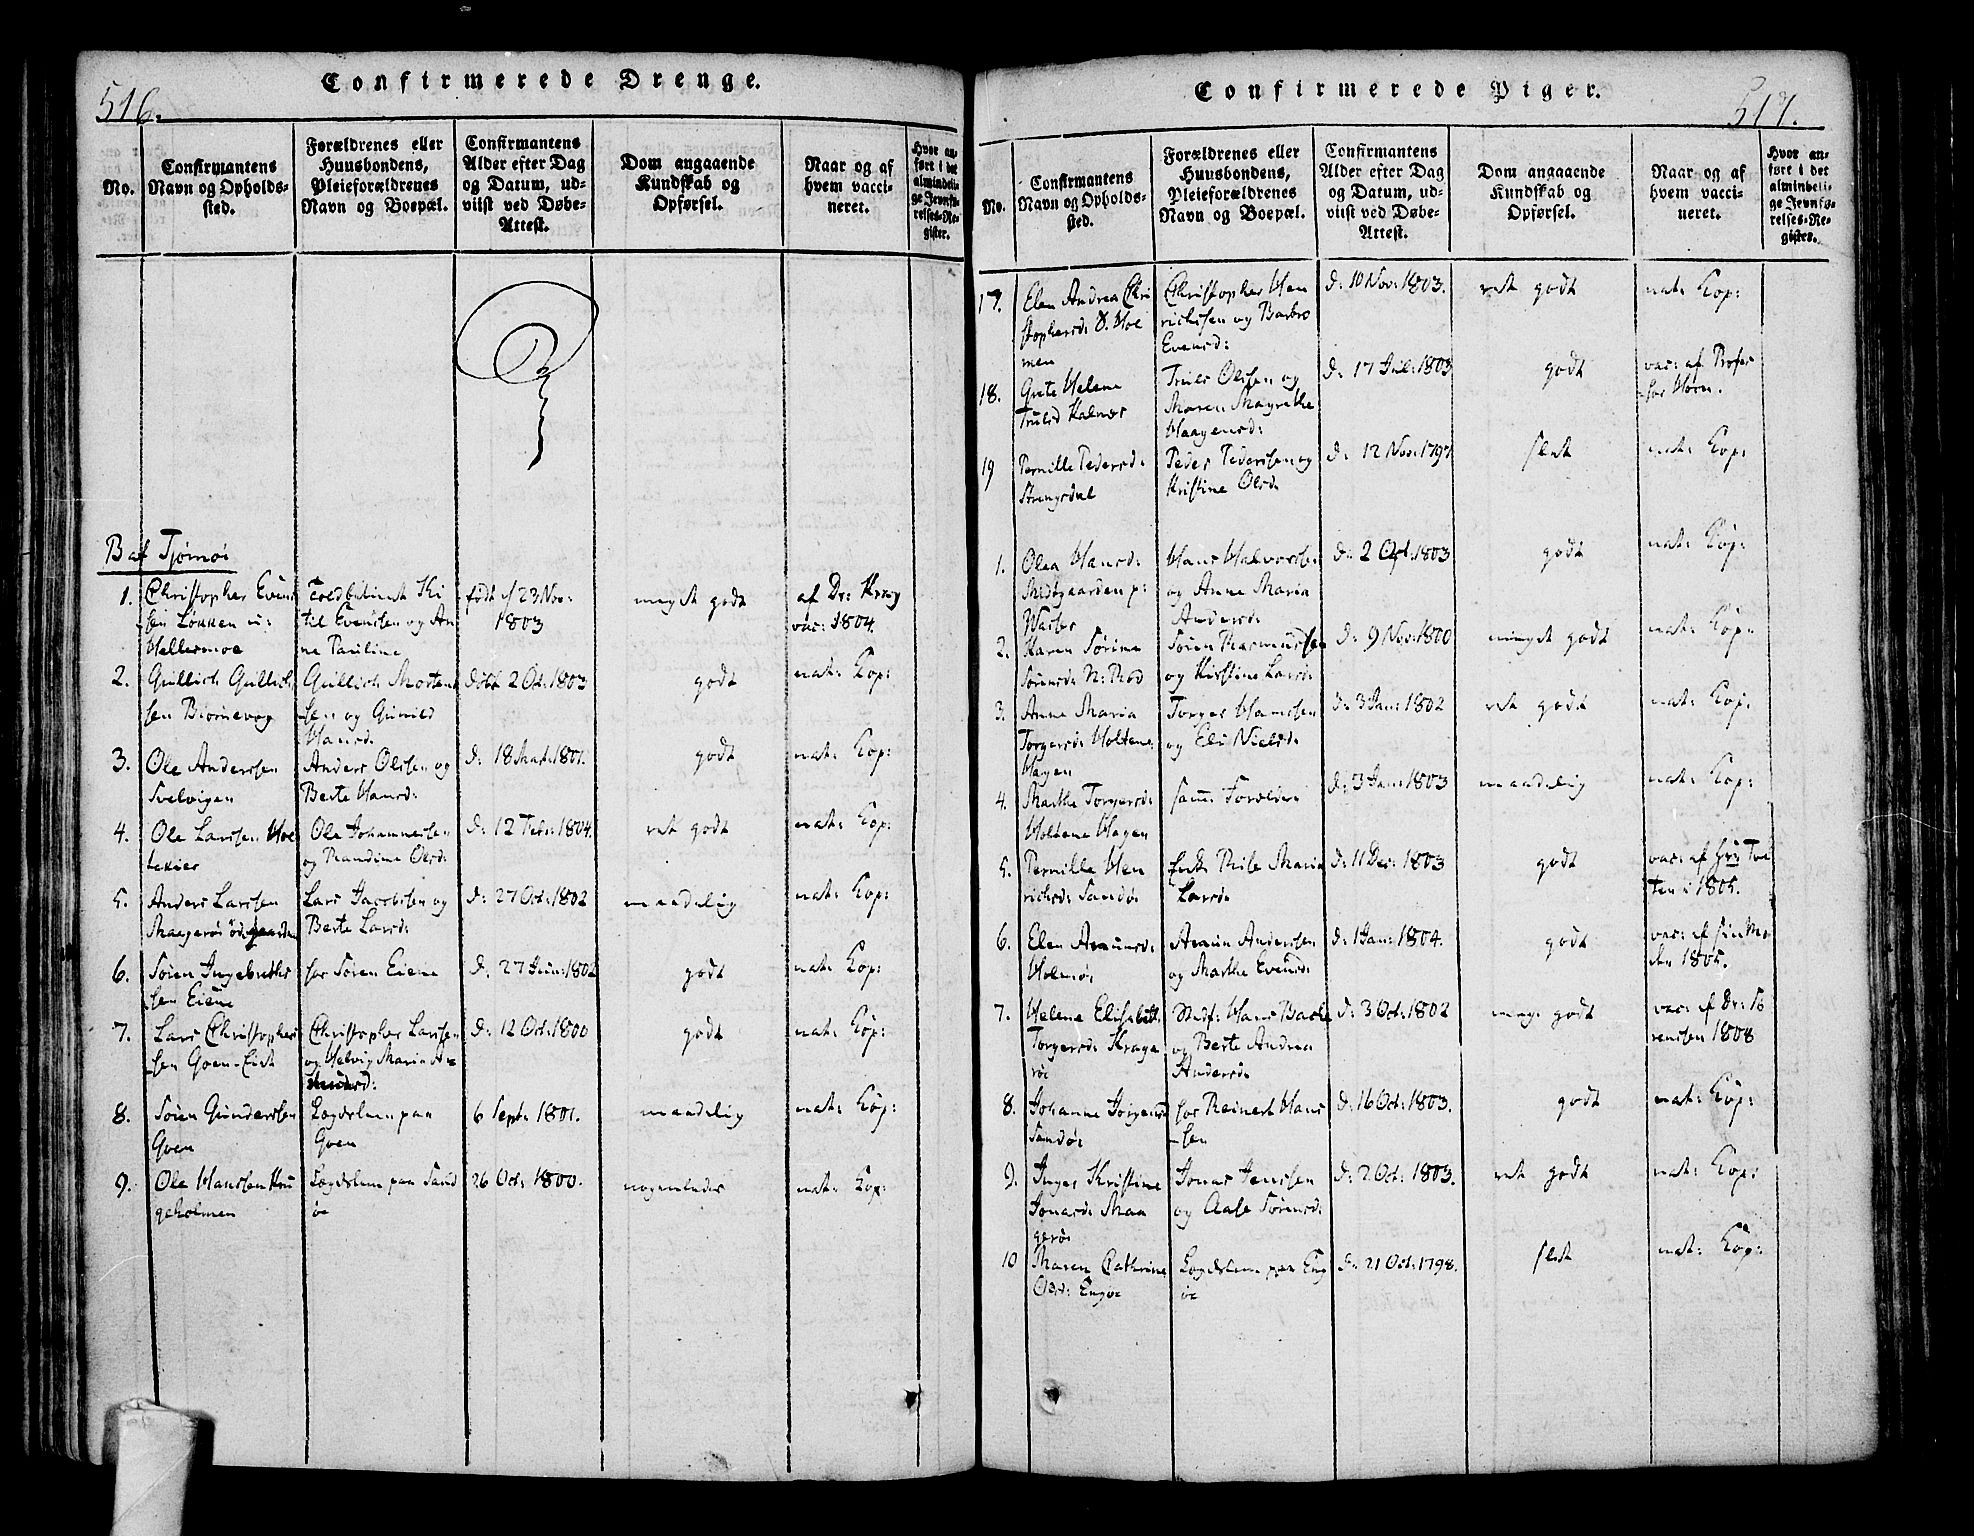 516.
Confirmerede Drenge.
No.
Confirmantens
Navn og Opholds-
sted.
Forældrenes eller
Huusbondens,
Pleieforældrenes
Navn og Boepæl.
Confirmantens
Alder efter Dag
og Datum, ud-
viist ved Døbe-
Attest.
Dom angaaende
Kundskab og
Opførsel.
Naar og af
hvem vacci-
neret.
Hvor an-
ført i det
almindeli-
ge Jevnfø-
relses-Re-
gister.
B af Tjømøe
1.
Christopher Evens
sen Løkken u:
Hellermoe
Toldbetient Ki
til Evenssen og An
ne Pauline
født d 23 Nov:
1803
meget godt
af Dr: Krag
vac: 1804.
2.
Gullich Gullich
sen Biørnevog
Gullich Morten
sen og Gunild
Hansd:
døbt 2 Oct: 1803
godt
nat: Kop:
3.
Ole Anderssen
Svelvigen
Anders Olssen og
Berte Hansd:
d: 18 Mart: 1801.
godt
nat: Kop:
4.
Ole Larssen Hol
tekier
Ole Johannessen
og Randine Olsd:
d: 12 Febr: 1804.
ret godt
nat: Kop:
5.
Anders Larssen
Maagerøe Ødegaarden
Lars Jacobssen og
Berte Larsd:
d: 27 Oct: 1802
maadelig
nat: Kop:
6.
Søren Ingebreths
sen Eiene
for Søren Eiene
d: 27 Jun: 1802
godt
nat: Kop:
7.
Lars Christophers
sen Goen-Eist
Christopher Larssen
og Helvig Maria A=
d: 12 Oct: 1800
godt
nat: Kop:
8.
Søren Gunderssen
Goen
Logdslem paa
Goen
6 Sept: 1801.
maadelig
nat: Kop:
9.
Ole Hanssen Kru
geholmen
Logdslem paa Sand
øe
26 Oct: 1800.
nogenledes
nat: Kop:
517.
Confirmerede Piger.
No.
Confirmantens
Navn og Opholds-
sted.
Forældrenes eller
Huusbondens,
Pleieforældrenes
Navn og Boepæl.
Confirmantens
Alder efter Dag
og Datum, ud-
viist ved Døbe-
Attest.
Dom angaaende
Kundskab og
Opførsel.
Naar og af
hvem vacci-
neret.
Hvor an-
ført i det
almindeli-
ge Jevnfø-
relses-Re-
gister.
17.
Elen Andrea Chri
stophersd: V. Hol
men
Christopher Hen
richssen og Barbro
Evensd:
d: 10 Nov: 1803.
ret godt
nat: Kop:
18.
Grete Helene
Trulsd Kalnæs
Truls Olssen og
Maren Magrethe
Haagensd:
d: 17 Jul: 1803
godt
vac: af Profes
sor Horn.
19
Pernille Pedersd:
Strengsdal
Peder Pederssen og
Kristine Olsd:
d: 12 Nov: 1797
slet
nat: Kop:
1.
Olea Hansd:
Midtgaarden p:
Vasser
Hans Halvorssen
og Anne Maria
Andersd:
d: 2 Oct: 1803
godt
nat: Kop:
2.
Karen Sørine
Sørensd: N: Rød
Søren Rasmussen
og Kirstine Larsd:
d: 9 Nov: 1800
meget godt
nat: Kop:
3.
Anne Maria
Torgersd: Holtene
Hagen
Torger Hanssen
og Eli Nielsd:
d: 3 Jan: 1802
ret godt
nat: Kop:
4.
Marthe Torgersd:
Holtene Hagen
samme Forældre
d: 3 Jan: 1803
maadelig
nat: Kop:
5.
Pernille Hen
richsd: Sandøe
Enke Else Maria
Larsd:
d: 11 Dec: 1803
godt
vac: af Gry Tve
ten i 1805.
6.
Elen Arausd:
Holmøe
Araun Anderssen
og Marthe Evensd:
d: 1 Jan: 1804.
godt
vac: af
1805.
7.
Helene Elisabeth
Torgersd: Krage
røe
Stedf: Hans Bache
og Berte Andrea
Andersd:
d: 3 Oct: 1802
meg: godt
vac: af Dr: So
renssen 1808
8.
Johanne Jørgensd
Sandøe
for Reinert Hans
sen
d: 16 Oct: 1803.
godt
nat: Kop:
9.
Inger Kristine
Jonasd: Maa
gerøe
Jonas Jenssen
og Aase Sørensd:
d: 2 Oct: 1803.
ret godt
nat: Kop:
10
Maren Cathrine
Olsd: Engøe
Logdslem paa Eng
øe
d: 21 Oct: 1798.
slet
nat: Kop: